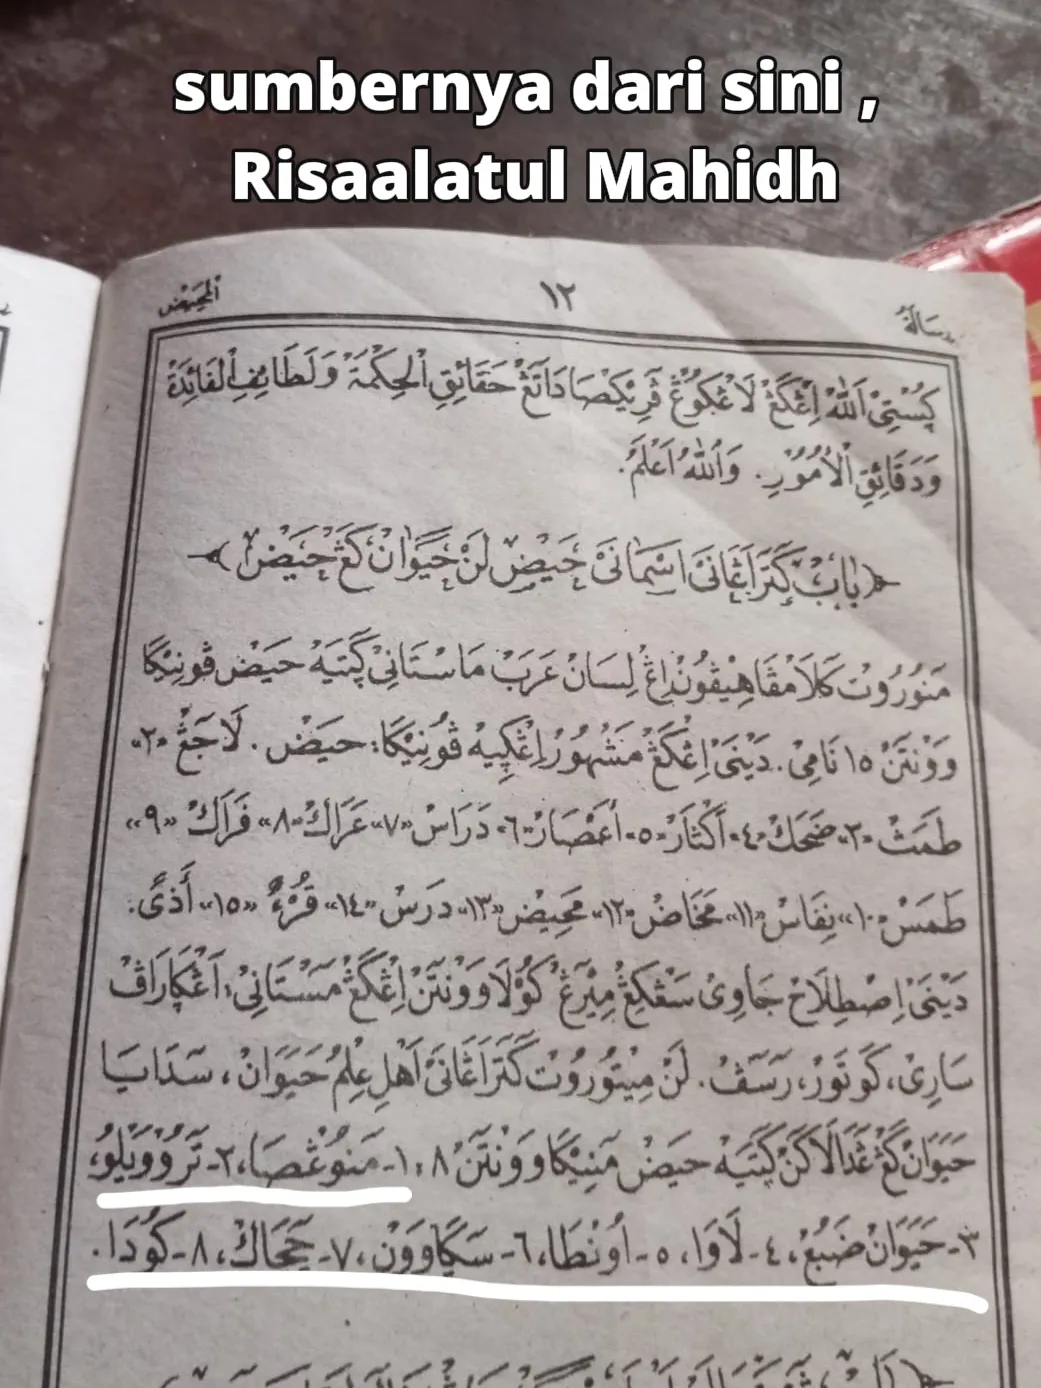 sumbernya dari sini ,
Risaalatul Mahidh
رسالة ١٢ المحيض
ڮُسْتِيْ اَللّٰهُ اِڠْكَڠْ لَاڠْكُوْڠْ ڤَرِيْكْصَا دَاتَڠْ حَقَائِقِ الْحِكْمَةْ وَلَطَائِفِ الْفَائِدَةْ
وَدَقَائِقِ الْأُمُوْرِ. وَاللّٰهُ اَعْلَمُ.
﴿بَابْ كَتَرَاڠَانَىْ اَسْمَانَىْ حَيْضْ لَنْ حَيَوَانْ كَڠْ حَيْضْ﴾
مَنُوْرُوْتْ كَلَامْڤَاهِيْڤُوْنْ دَاڠْ لِسَانْ عَرَبْ مَاسْتَانِيْ ڮَتِيَهْ حَيْضْ ڤُوْنِيْكَا
وَوْنْتَنْ ١٥ نَامِيْ. دَيْنَىْ اِڠْكَڠْ مَشْهُوْرْ اِڠْڮِيْهْ ڤُوْنِيْكَا: حَيْضْ. لَاجَڠْ «٢»
طَمَثْ «٣» ضَحَكْ «٤» أَكْثَارْ «٥» أَعْصَارْ «٦» دَرَاسْ «٧» عَرَاكْ «٨» فَرَاكْ «٩»
طَمَسْ «١٠» نِفَاسْ «١١» مَخَاضْ «١٢» مَحِيْضْ «١٣» دَرَسْ «١٤» قُرْءٌ «١٥» أَذًى.
دَيْنَىْ اِصْطِلَاحْ جَاوِىْ سَڠْكِڠْ مِيْرَڠْ كَوُلَا وَوْنْتَنْ اِڠْكَڠْ مَسْتَانِيْ: اَڠْڮَارَاڤْ
سَارِىْ، كَوْتَوْرْ، رَسَڤْ. لَنْ مِيْتُوْرُوْتْ كَتَرَاڠَانَىْ اَهْلِ عِلْمُ حَيَوَانْ، سَدَايَا
حَيَوَانْ كَڠْ ڠَدَالَاكَنْ ڮَتِيَهْ حَيْضْ مَنِيْكَا وَوْنْتَنْ ٨: ١- مَنُوْڠْصَا، ٢- تَرُوْوَيْلُوْ،
٣- حَيَوَانْ ضَبُعْ، ٤- لَاوَا، ٥- اُوْنْطَا، ٦- سَڮَاوَوْنْ، ٧- چَچَاكْ، ٨- كُوْدَا.